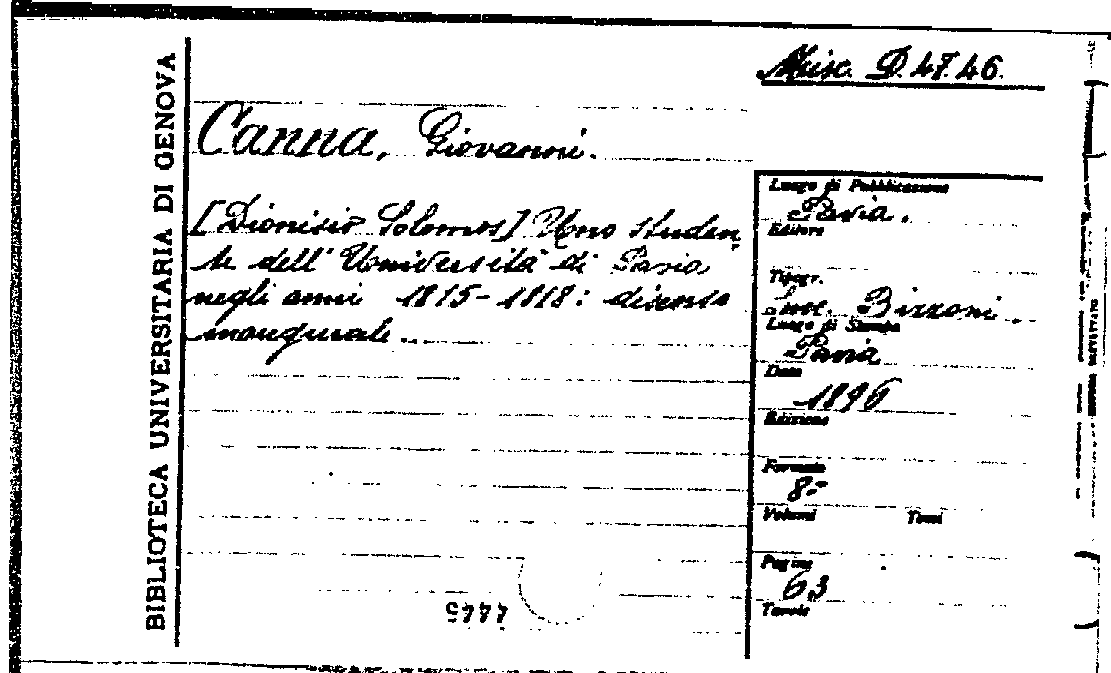 BIBLIOTECA UNIVERSITARIA DI GENOVA
Misc. D.47.46.
Canna, Giovanni.
[Dionisio Solomos] Uno studen
te dell' Università di Pavia
negli anni 1815-1818: discorso
inaugurale.
Luogo di Pubblicazione
Pavia.
Editore
Tipogr.
Succ. Bizzoni.
Luogo di Stampa
Pavia
Data
1896
Edizione
Formato
8.-
Volumi Tomi
Pagine
63
Tavole
4445